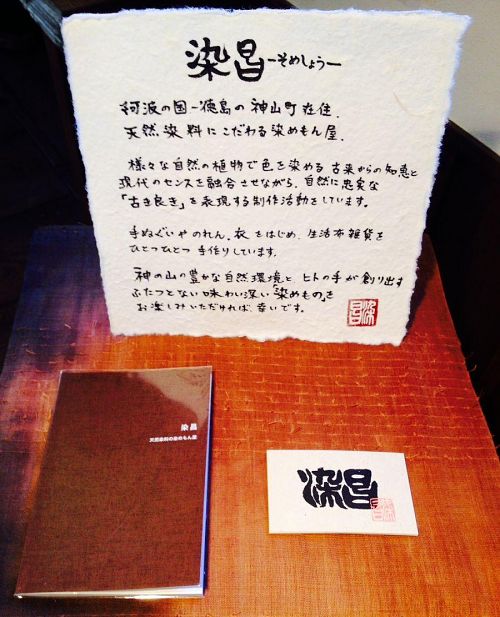 染昌 ーそめしょうー
阿波の国－徳島の神山町在住．
天然染料にこだわる染めもん屋．
様々な自然の植物で色を染める古来からの知恵と
現代のセンスを融合させながら、自然に忠実な
「古き良き」を表現する制作活動をしています．
手ぬぐいやのれん．衣をはじめ、生活布雑貨を
ひとつひとつ手作りしています．
神の山の豊かな自然環境と、ヒトの手が創り出す
ふたつとない味わい深い「染めもの」を
お楽しみいただければ、幸いです。
染昌
染昌
天然染料の染めもん屋
染昌